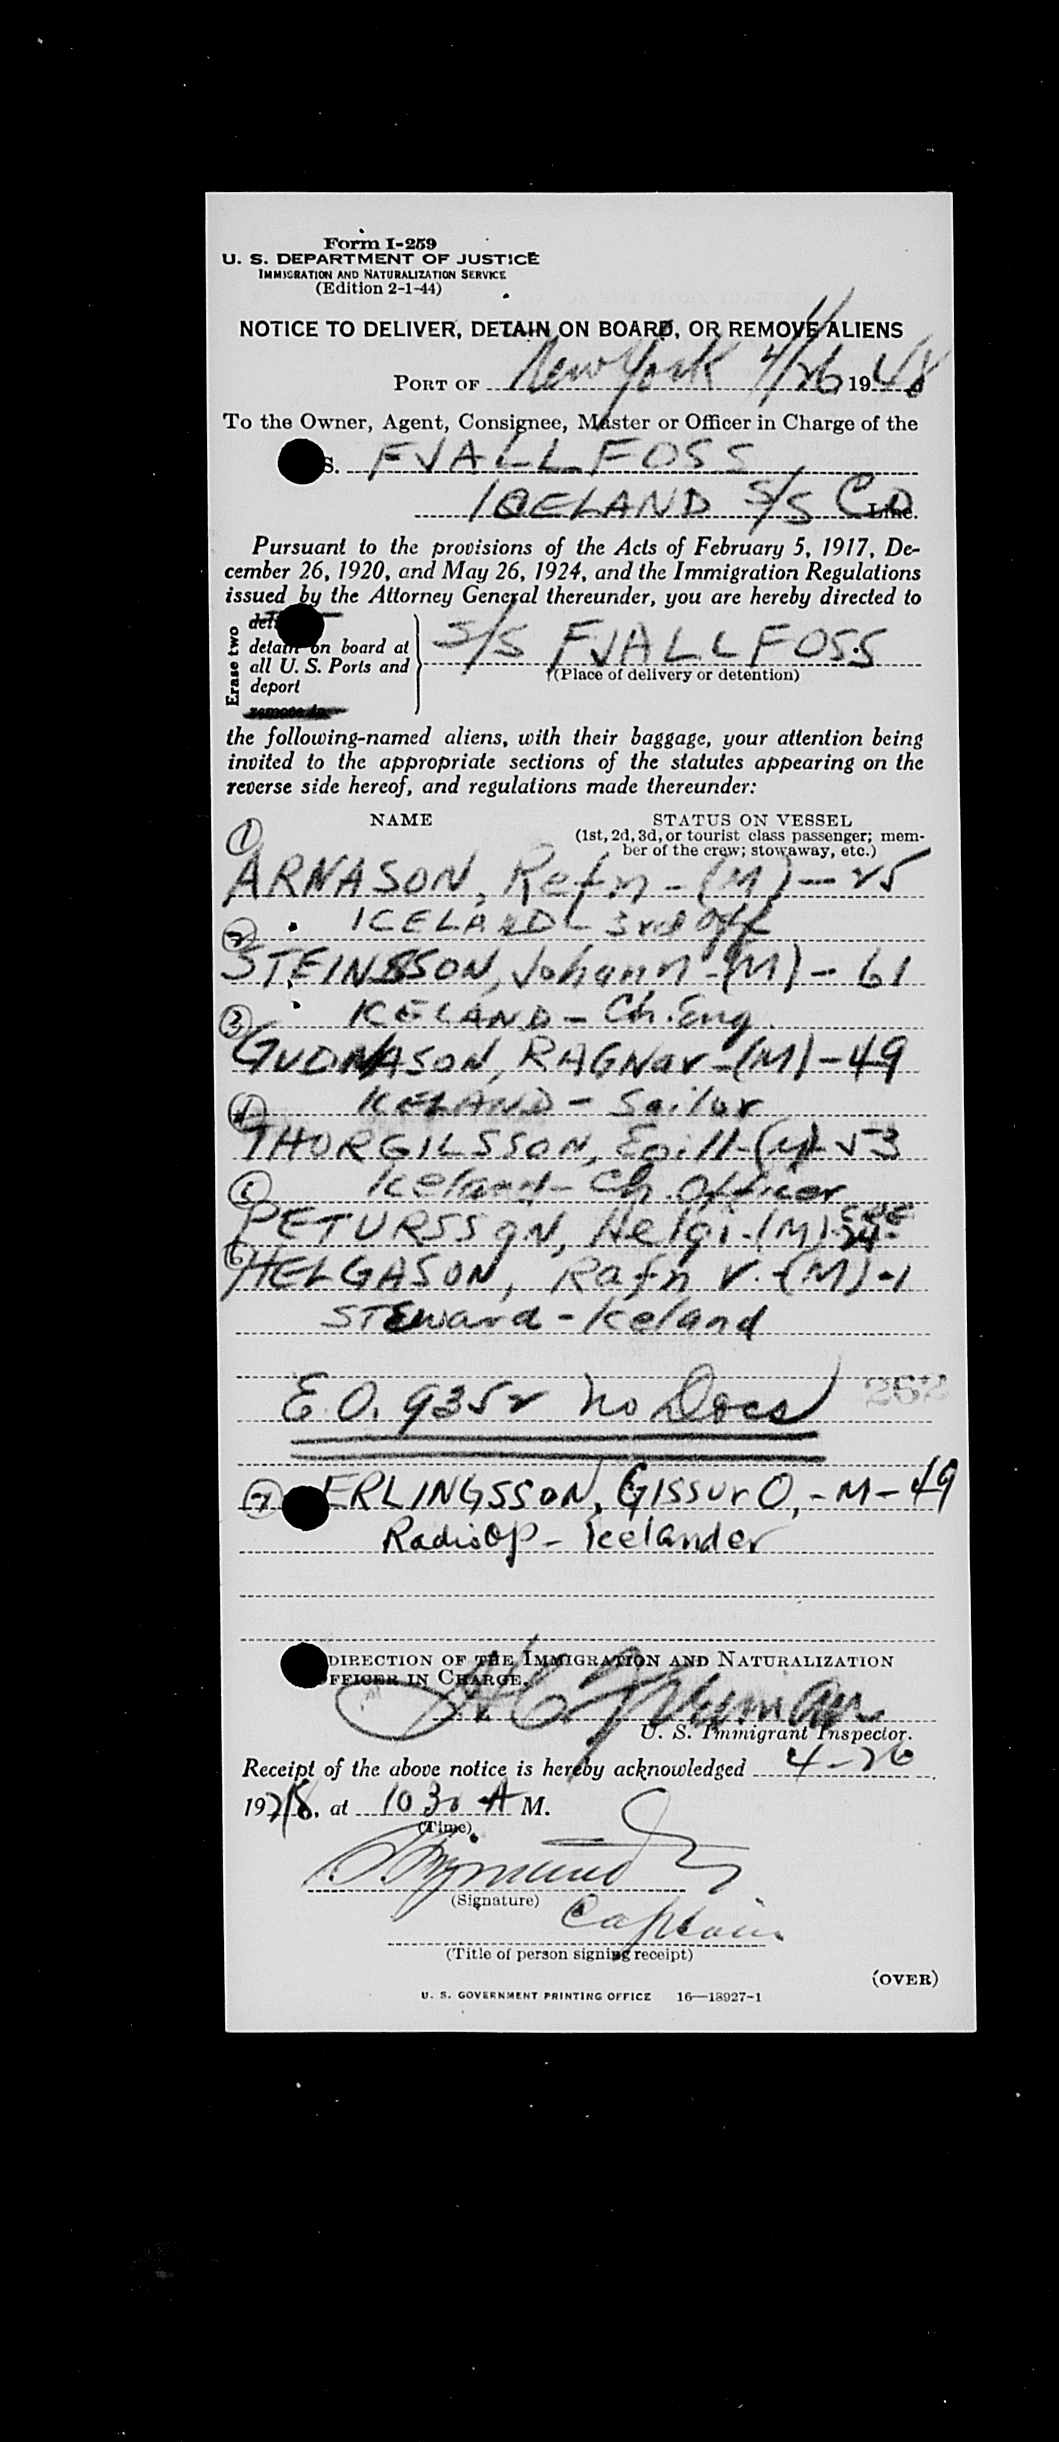 Form I-259
U. S. DEPARTMENT OF JUSTICE
IMMIGRATION AND NATURALIZATION SERVICE
(Edition 2-1-44)
NOTICE TO DELIVER, DETAIN ON BOARD, OR REMOVE ALIENS
PORT OF New York 4/26 1948
To the Owner, Agent, Consignee, Master or Officer in Charge of the
S. FJALLFOSS
ICELAND S/S CO Line.
Pursuant to the provisions of the Acts of February 5, 1917, De-
cember 26, 1920, and May 26, 1924, and the Immigration Regulations
issued by the Attorney General thereunder, you are hereby directed to
Erase two
detain on board at
all U. S. Ports and
deport
remove to
S/S FJALLFOSS
(Place of delivery or detention)
the following-named aliens, with their baggage, your attention being
invited to the appropriate sections of the statutes appearing on the
reverse side hereof, and regulations made thereunder:
NAME STATUS ON VESSEL
(1st, 2d, 3d, or tourist class passenger; mem-
ber of the crew; stowaway, etc.)
① ARNASON, Refn - (M) - 25
ICELAND - 3rd Off
② STEINSSON, Johann - (M) - 61
ICELAND - Ch. Eng.
③ GUDNASON, RAGNar - (M) - 49
ICELAND - Sailor
④ THORGILSSON, Egill - (M) - 53
Iceland - Ch. Officer
⑤ PETURSSON, Helgi - (M)
⑥ HELGASON, Rafn V. - (M) - 1
STEward - Iceland
E.O. 9352 No Docs
262
⑦ ERLINGSSON, GISSUr O, - M - 49
Radio Op - Icelander
DIRECTION OF THE IMMIGRATION AND NATURALIZATION
OFFICER IN CHARGE.
U. S. Immigrant Inspector.
Receipt of the above notice is hereby acknowledged 4-26
1948, at 10 30 A M.
(Time)
(Signature)
Captain
(Title of person signing receipt)
(OVER)
U. S. GOVERNMENT PRINTING OFFICE 16—18927-1